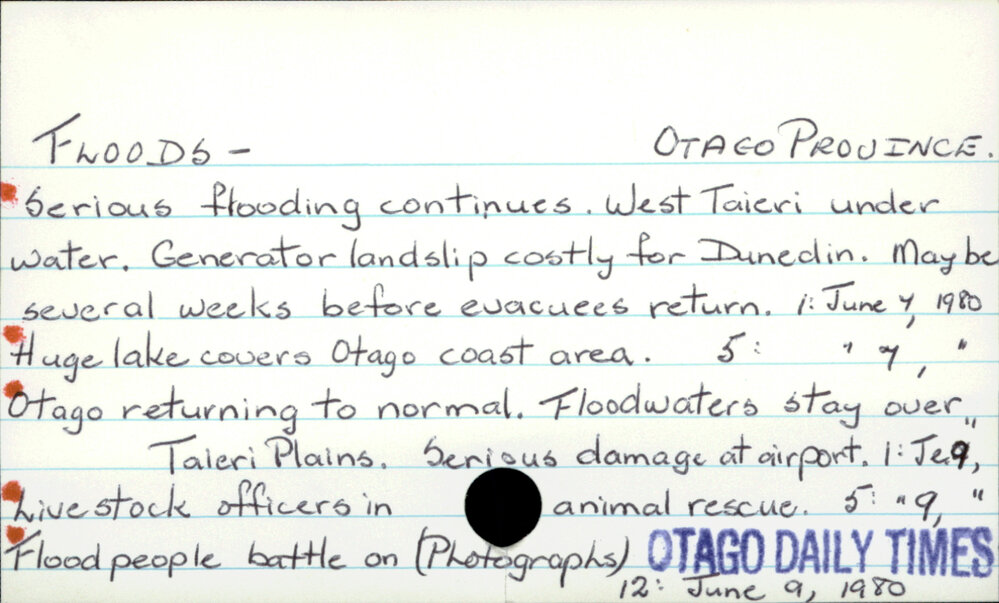 FLOODS - OTAGO PROVINCE.
Serious flooding continues. West Taieri under
water. Generator landslip costly for Dunedin. May be
several weeks before evacuees return. 1: June 7, 1980
Huge lake covers Otago coast area. 5: " 7, "
Otago returning to normal. Floodwaters stay over
Taieri Plains. Serious damage at airport. 1: Je.9, "
Livestock officers in animal rescue. 5: " 9, "
Flood people battle on (Photographs) OTAGO DAILY TIMES
12: June 9, 1980